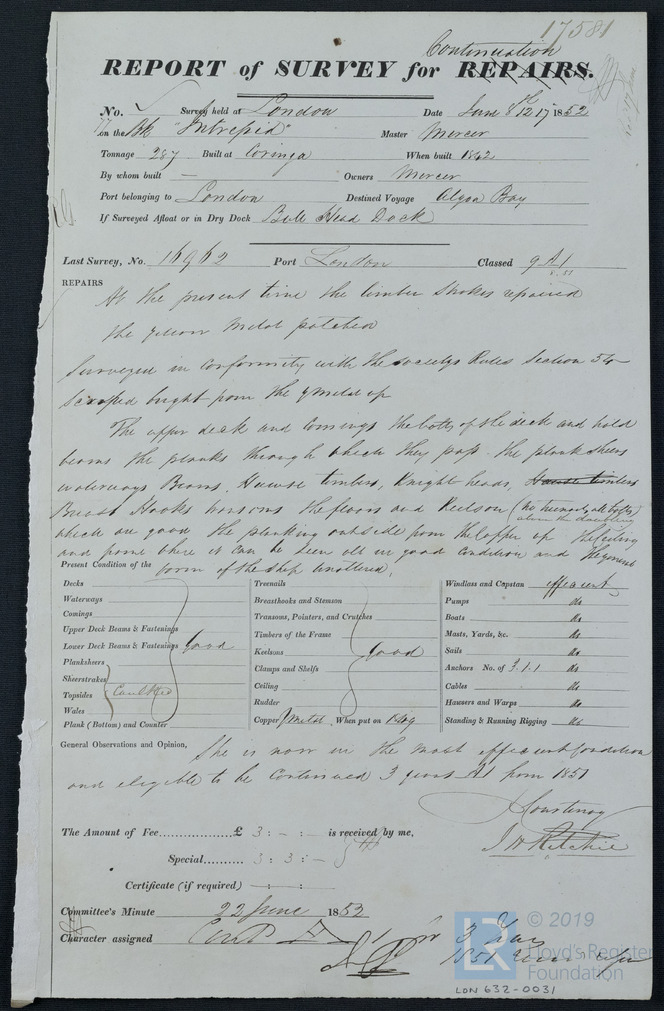 17581
Continuation
REPORT of SURVEY for REPAIRS.
No. Survey held at London Date June 8th 12 17 1852
on the Bk "Intrepid" Master Mercer
Tonnage 287 Built at Coringa When built 1842
By whom built — Owners Mercer
Port belonging to London Destined Voyage Algoa Bay
If Surveyed Afloat or in Dry Dock Bull Head Dock
Last Survey, No. 16962 Port London Classed 9 A1
REPAIRS
At the present time the limber strakes repaired
the yellow metal patched
Surveyed in conformity with the societys Rules Section 54
scraped bright from the y metal up
The upper deck and comings the bolts of the deck and hold
beams the planks through which they pass the plank sheers
waterways Beams, Hawse timbers, Knight heads, Hawse timbers
Breast Hooks transoms the floors and Keelson (the treenails all bolts)
which are good the planking outside from the copper up the ceiling
and frame where it can be seen all in good condition and the general
Present Condition of the form of the ship unaltered.
Decks
Waterways
Comings
Upper Deck Beams & Fastenings
Lower Deck Beams & Fastenings Good
Planksheers
Sheerstrakes
Topsides Caulked
Wales
Plank (Bottom) and Counter
Treenails
Breasthooks and Stemson
Transoms, Pointers, and Crutches
Timbers of the Frame
Keelsons Good
Clamps and Shelfs
Ceiling
Rudder
Copper y Metal When put on 1849
Windlass and Capstan efficient
Pumps do
Boats do
Masts, Yards, &c. do
Sails do
Anchors No. of 3.1.1 do
Cables do
Hausers and Warps do
Standing & Running Rigging do
General Observations and Opinion, She is now in the most efficient condition
and eligible to be continued 3 years A1 from 1851
Courtenay
J H Ritchie
The Amount of Fee................£ 3 : - : - is received by me,
Special.......... 3 : 3 : -
Certificate (if required) - : - : -
Committee's Minute 22 June 1852
Character assigned Contd A 1 for 3 Years
1851
LR © 2019
Lloyd's Register
Foundation
LON 632-0031